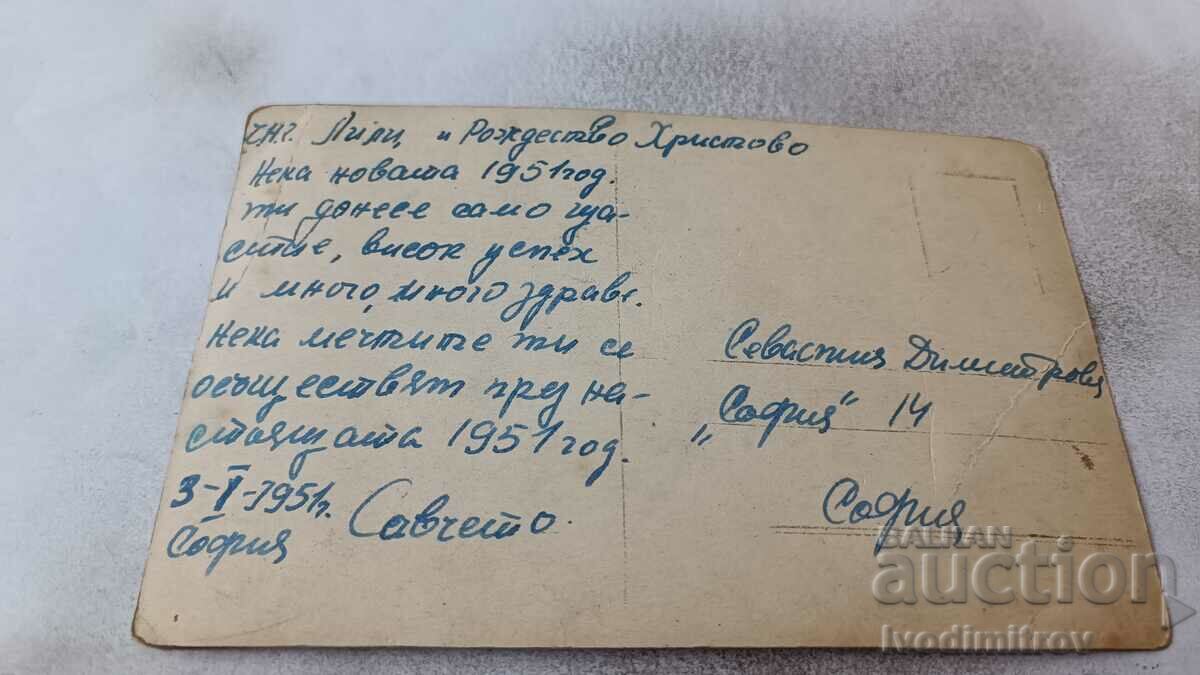 Ч.Н.Г. Лили, и Рождество Христово
Нека новата 1951 год.
ти донесе само ща-
стие, висок успех
и много, много здраве.
Нека мечтите ти се
осъществят през на-
стоящата 1951 год.
3-I-1951г.
София
Савчето.
Севастия Димитрова
„София" 14
София
BALKAN
auction
Ivodimitrov